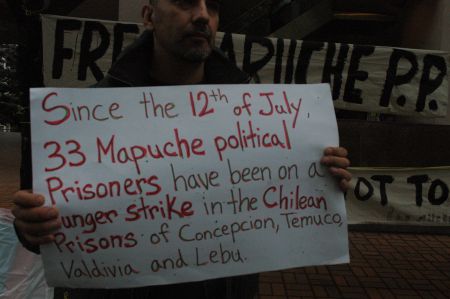 FREE MAPUCHE P.P.
Since the 12th of July,
33 Mapuche political
Prisoners have been on a
unger strike in the Chilean
Prisons of Concepcion, Temuco,
Valdivia and Lebu.
OT TO